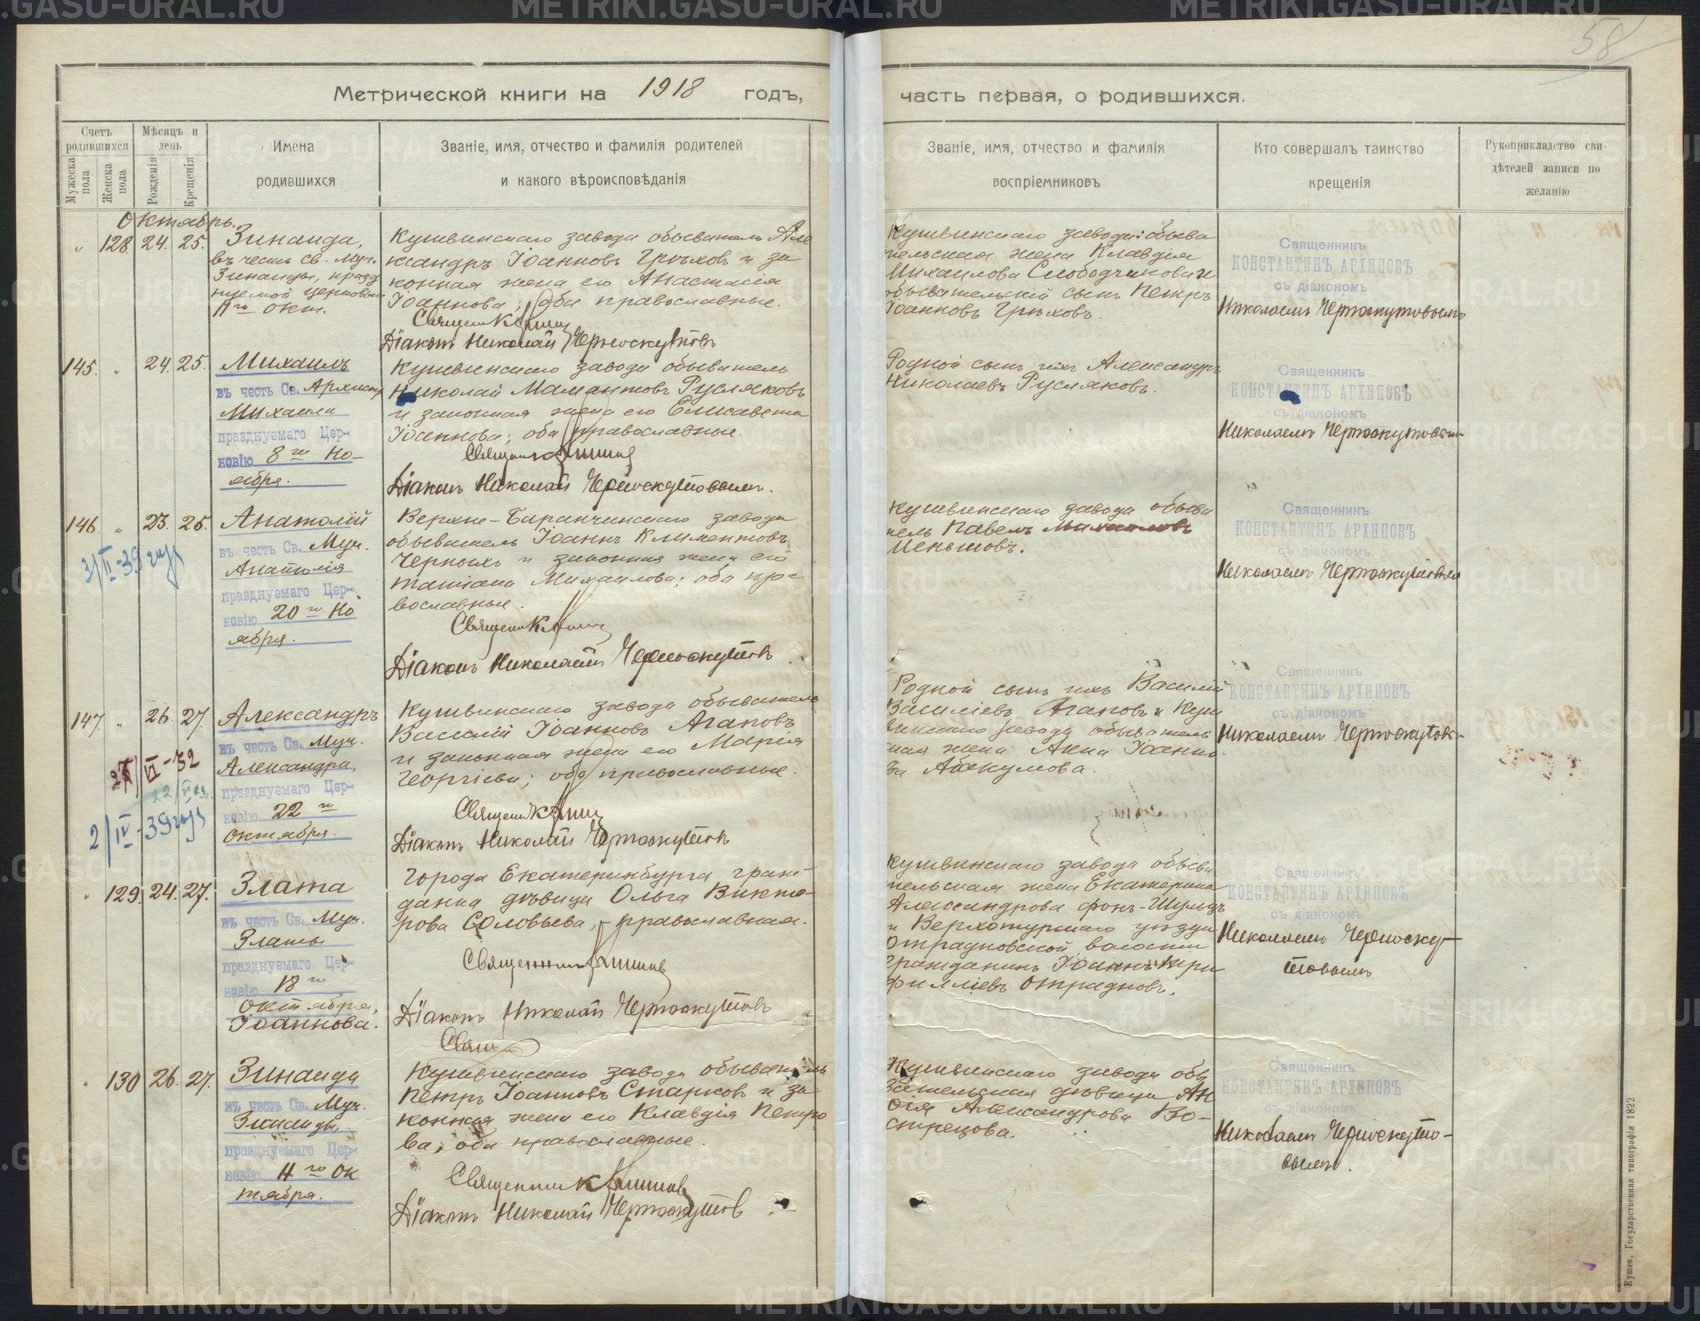 58
Метрической книги на 1918 годъ,
часть первая, о родившихся.
Счетъ родившихся
Мужеска пола
Женска пола
Мѣсяцъ и день
Рожденія
Крещенія
Имена
родившихся
Званіе, имя, отчество и фамилія родителей
и какого вѣроисповѣданія
Званіе, имя, отчество и фамилія
воспріемниковъ
Кто совершалъ таинство
крещенія
Рукоприкладство сви-
дѣтелей записи по
желанію
Октябрь.
" 128. 24. 25.
Зинаида,
въ честь св. муч.
Зинаиды, празд
нуемой церковію
11го окт.
Кушвинскаго завода обыватель Але
ксандръ Іоанновъ Грѣховъ и за
конная жена его Анастасія
Іоаннова; оба православные.
Діаконъ Николай Черноскутовъ
Кушвинскаго завода обыва
тельская жена Клавдія
Михаилова Слободчикова и
обывательскій сынъ Петръ
Іоанновъ Грѣховъ.
Священникъ
КОНСТАНТИНЪ АРХИПОВЪ
съ діакономъ
Николаемъ Черноскутовымъ
145. " 24. 25.
Михаилъ
въ честь Св. Архистр.
Михаила
празднуемаго Цер-
ковію 8го Но-
ября.
Кушвинскаго завода обыватель
Николай Мамантовъ Русляковъ
и законная жена его Елисавета
Іоаннова; оба православные.
Діаконъ Николай Черноскутовымъ.
Родной сынъ ихъ Александръ
Николаевъ Русляковъ.
Священникъ
КОНСТАНТИНЪ АРХИПОВЪ
съ діакономъ
Николаемъ Черноскутовымъ
146 " 23. 25.
2/II-39 году
Анатолій
въ честь Св. Муч.
Анатолія
празднуемаго Цер-
ковію 20го Но
ября.
Верхне-Баранчинскаго завода
обыватель Іоаннъ Климентовъ
Черныхъ и законная жена его
Татіана Михаилова; оба пра-
вославные.
Діаконъ Николай Черноскутовъ
Кушвинскаго завода обыва
тель Павелъ
Меньшовъ.
Священникъ
КОНСТАНТИНЪ АРХИПОВЪ
съ діакономъ
Николаемъ Черноскутовымъ
147. " 26. 27.
VI-32
2/IV-39 году
Александръ
въ честь Св. Муч.
Александра,
празднуемаго Цер-
ковію 22го
октября.
Кушвинскаго завода обыватель
Василій Іоанновъ Агаповъ
и законная жена его Марія
Георгіева; оба православные.
Діаконъ Николай Черноскутовъ
Родной сынъ ихъ Василій
Василіевъ Агаповъ и Куш
винскаго завода обыватель
ская жена Анна Іоанно
ва Абакумова.
Священникъ
КОНСТАНТИНЪ АРХИПОВЪ
съ діакономъ
Николаемъ Черноскутовы
" 129. 24. 27.
Злата
въ честь Св. Муч.
Златы
празднуемаго Цер-
ковію 18го
октября,
Іоаннова.
города Екатеринбурга граж-
данка дѣвица Ольга Викто-
рова Соловьева, православная.
Діаконъ Николай Черноскутовъ
Свящ
Кушвинскаго завода обыва
тельская жена Екатерина
Александрова фонъ-Шульцъ
и Верхотурскаго уѣзда
Отрадновской волости
гражданинъ Іоаннъ Три
филліевъ Отрадновъ.
Священникъ
КОНСТАНТИНЪ АРХИПОВЪ
съ діакономъ
Николаемъ Черноску-
товымъ
" 130 26. 27.
Зинаида
въ честь Св. Муч.
Зинаиды,
празднуемаго Цер-
ковію 11го Ок
тября.
Кушвинскаго завода обыватель
Петръ Іоанновъ Старковъ и за
конная жена его Клавдія Петро
ва; оба православные.
Діаконъ Николай Черноскутовъ
Кушвинскаго завода обы
вательская дѣвица Ан
Александрова Во-
стрецова.
Священникъ
КОНСТАНТИНЪ АРХИПОВЪ
съ діакономъ
Николаемъ Черноскуто-
вымъ.
Кушв. Государственная типографія 1822
METRIKI.GASU-URAL.RU